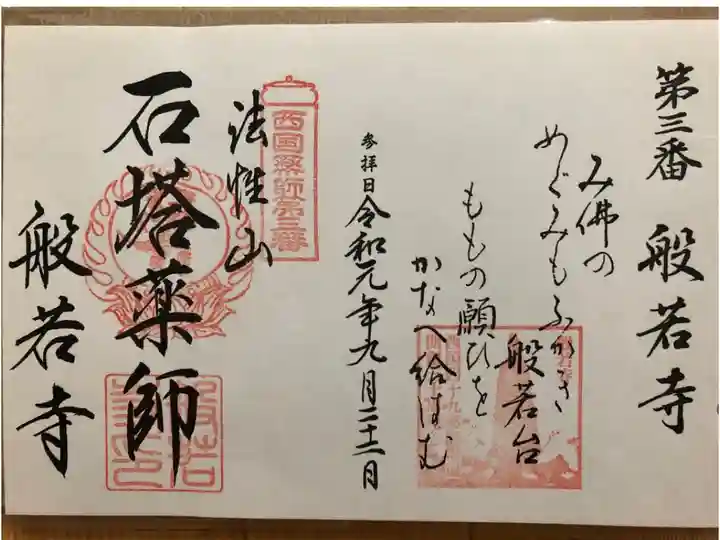 第三番 般若寺
み佛の
めぐみもふかき
般若台
ももの願ひを
かなへ給はむ
参拝日 令和元年九月二十二日
西国薬師第三番
法性山
石塔薬師
般若寺